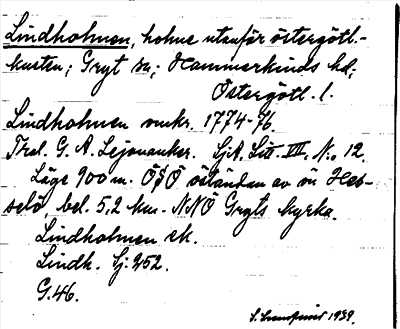 Lindholmen, holme utanför östergötl.-
kusten; Gryt sn; Hammarkinds hd;
Östergötl. l.
Lindholmen omkr. 1774-76.
Tral. G. A. Lejonanker. SjA, Litt. VIII. N:o 12.
Läge 900 m. ÖSÖ östanden av ön Häs-
selö, bel. 5,2 km. NNÖ Gryts kyrka.
Lindholmen ek.
Lindh. Sj: 252.
G.46.
1939.